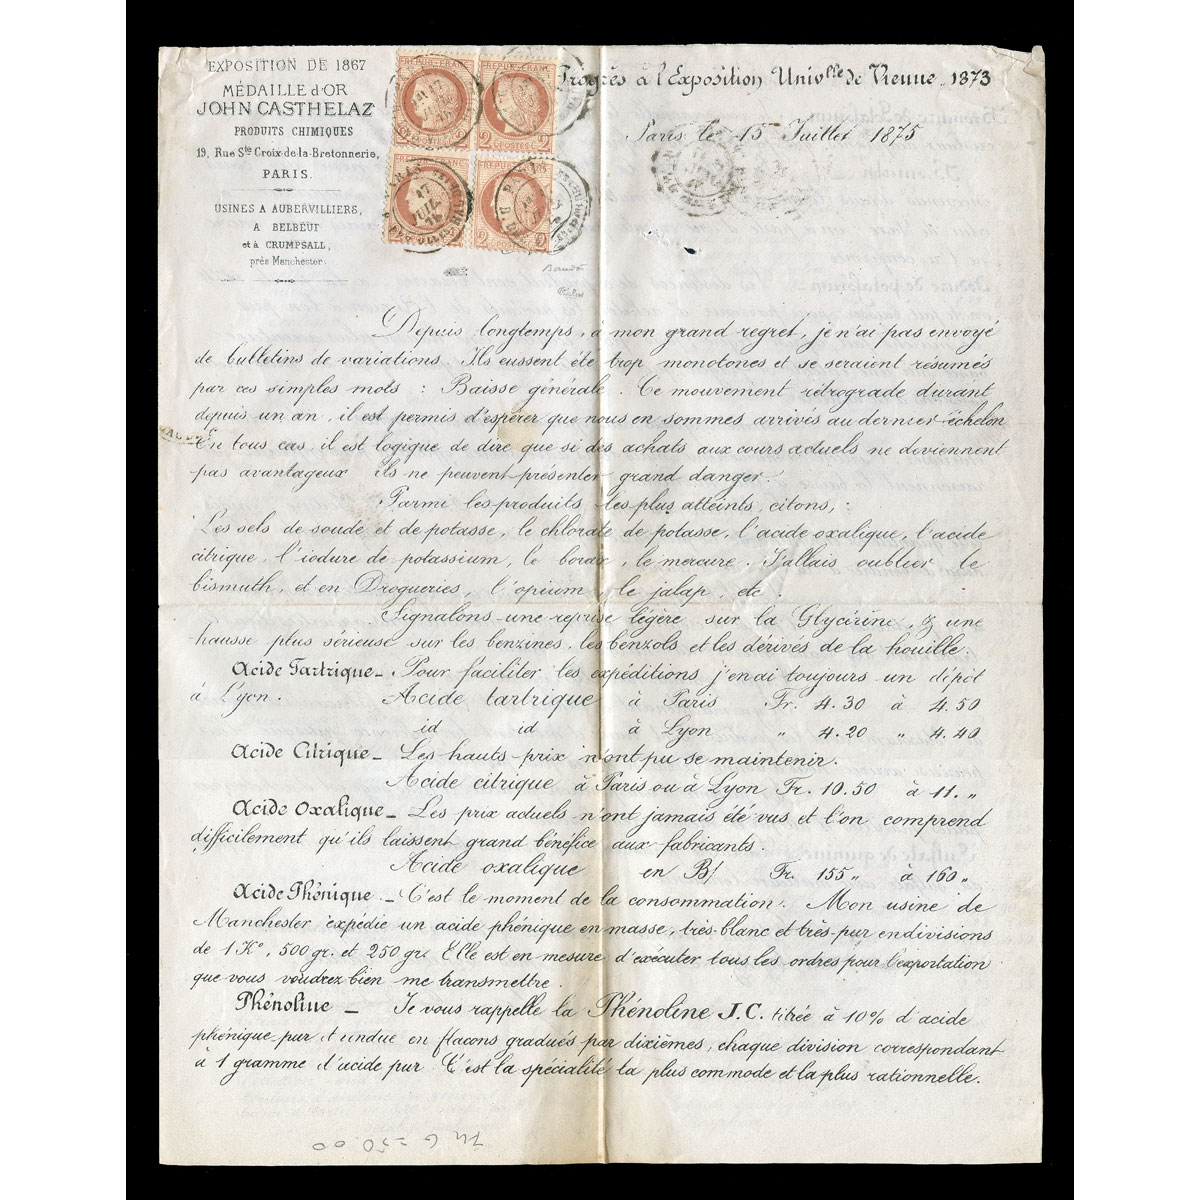 EXPOSITION DE 1867
MÉDAILLE d'OR
JOHN CASTHELAZ
PRODUITS CHIMIQUES
19, Rue Ste Croix-de-la-Bretonnerie,
PARIS.
USINES A AUBERVILLIERS,
A BELBEUF
et à CRUMPSALL,
près Manchester.
REPUB. FRANC.
REPUB. FRANC.
2 POSTES 2
2 POSTES 2
17
JUIL.
Progrès à l'Exposition Univlle de Vienne, 1873
Paris le 15 Juillet 1875
Depuis longtemps, à mon grand regret, je n'ai pas envoyé
de bulletins de variations. Ils eussent été trop monotones et se seraient résumés
par ces simples mots : Baisse générale. Ce mouvement rétrograde durant
depuis un an, il est permis d'espérer que nous en sommes arrivés au dernier échelon
En tous cas, il est logique de dire que si des achats aux cours actuels ne deviennent
pas avantageux ils ne peuvent présenter grand danger.
Parmi les produits les plus atteints, citons,:
Les sels de soude et de potasse, le chlorate de potasse, l'acide oxalique, l'acide
citrique, l'iodure de potassium, le borax, le mercure. J'allais oublier le
bismuth, et en Drogueries, l'opium, le jalap, etc.
Signalons une reprise légère sur la Glycérine, & une
hausse plus sérieuse sur les benzines, les benzols et les dérivés de la houille.
Acide Tartrique_ Pour faciliter les expéditions j'en ai toujours un dépôt
à Lyon. Acide tartrique à Paris Fr. 4.30 à 4.50
id id à Lyon " 4.20 " 4.40
Acide Citrique_ Les hauts prix n'ont pu se maintenir.
Acide citrique à Paris ou à Lyon Fr. 10.50 à 11."
Acide Oxalique_ Les prix actuels n'ont jamais été vus et l'on comprend
difficilement qu'ils laissent grand bénéfice aux fabricants.
Acide oxalique en B/ Fr. 155" à 160"
Acide Phénique_ C'est le moment de la consommation. Mon usine de
Manchester expédie un acide phénique en masse, très-blanc et très-pur en divisions
de 1 Ko, 500 gr. et 250 gr. Elle est en mesure d'exécuter tous les ordres pour l'exportation
que vous voudrez bien me transmettre.
Phénoline _ Je vous rappelle la Phénoline J.C. titrée à 10% d'acide
phénique pur et vendue en flacons gradués par dixièmes, chaque division correspondant
à 1 gramme d'acide pur. C'est la spécialité la plus commode et la plus rationnelle.